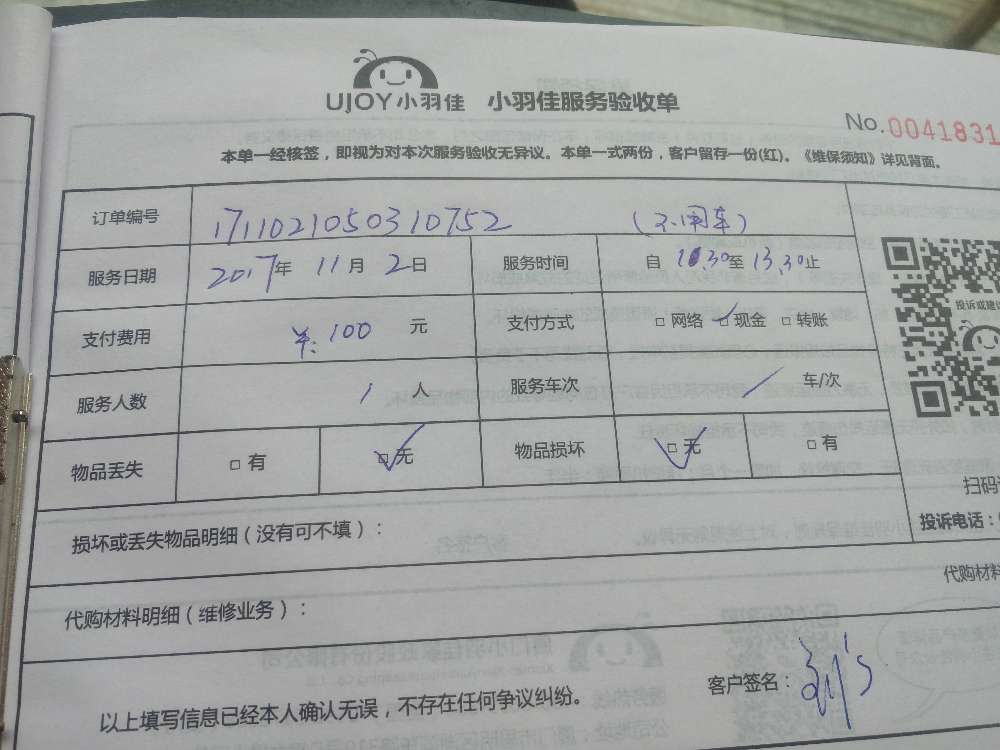 UJOY小羽佳 小羽佳服务验收单
No.0041831
本单一经核签，即视为对本次服务验收无异议。本单一式两份，客户留存一份(红)。《维保须知》详见背面。
订单编号 1711021050310752 (不用车)
服务日期 2017年 11月 2日 服务时间 自 10.30至 13.30止
支付费用 ¥:100 元 支付方式 □ 网络 □ 现金 □ 转账
服务人数 1 人 服务车次 / 车/次
物品丢失 □ 有 □ 无 物品损坏 □ 无 □ 有
投诉或建议
扫码
投诉电话：
损坏或丢失物品明细（没有可不填）：
代购材料
代购材料明细（维修业务）：
客户签名：
以上填写信息已经本人确认无误，不存在任何争议纠纷。